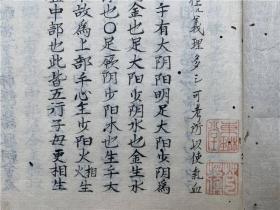 義理多三可考所以使氣血
手有大阴阳明足大阳少阴為
金也足大阳少阴水也金生水
也〇足厥阴少阳木也生手大
故為上部手心主少阳火相火生
中部也此皆五行子母更相生